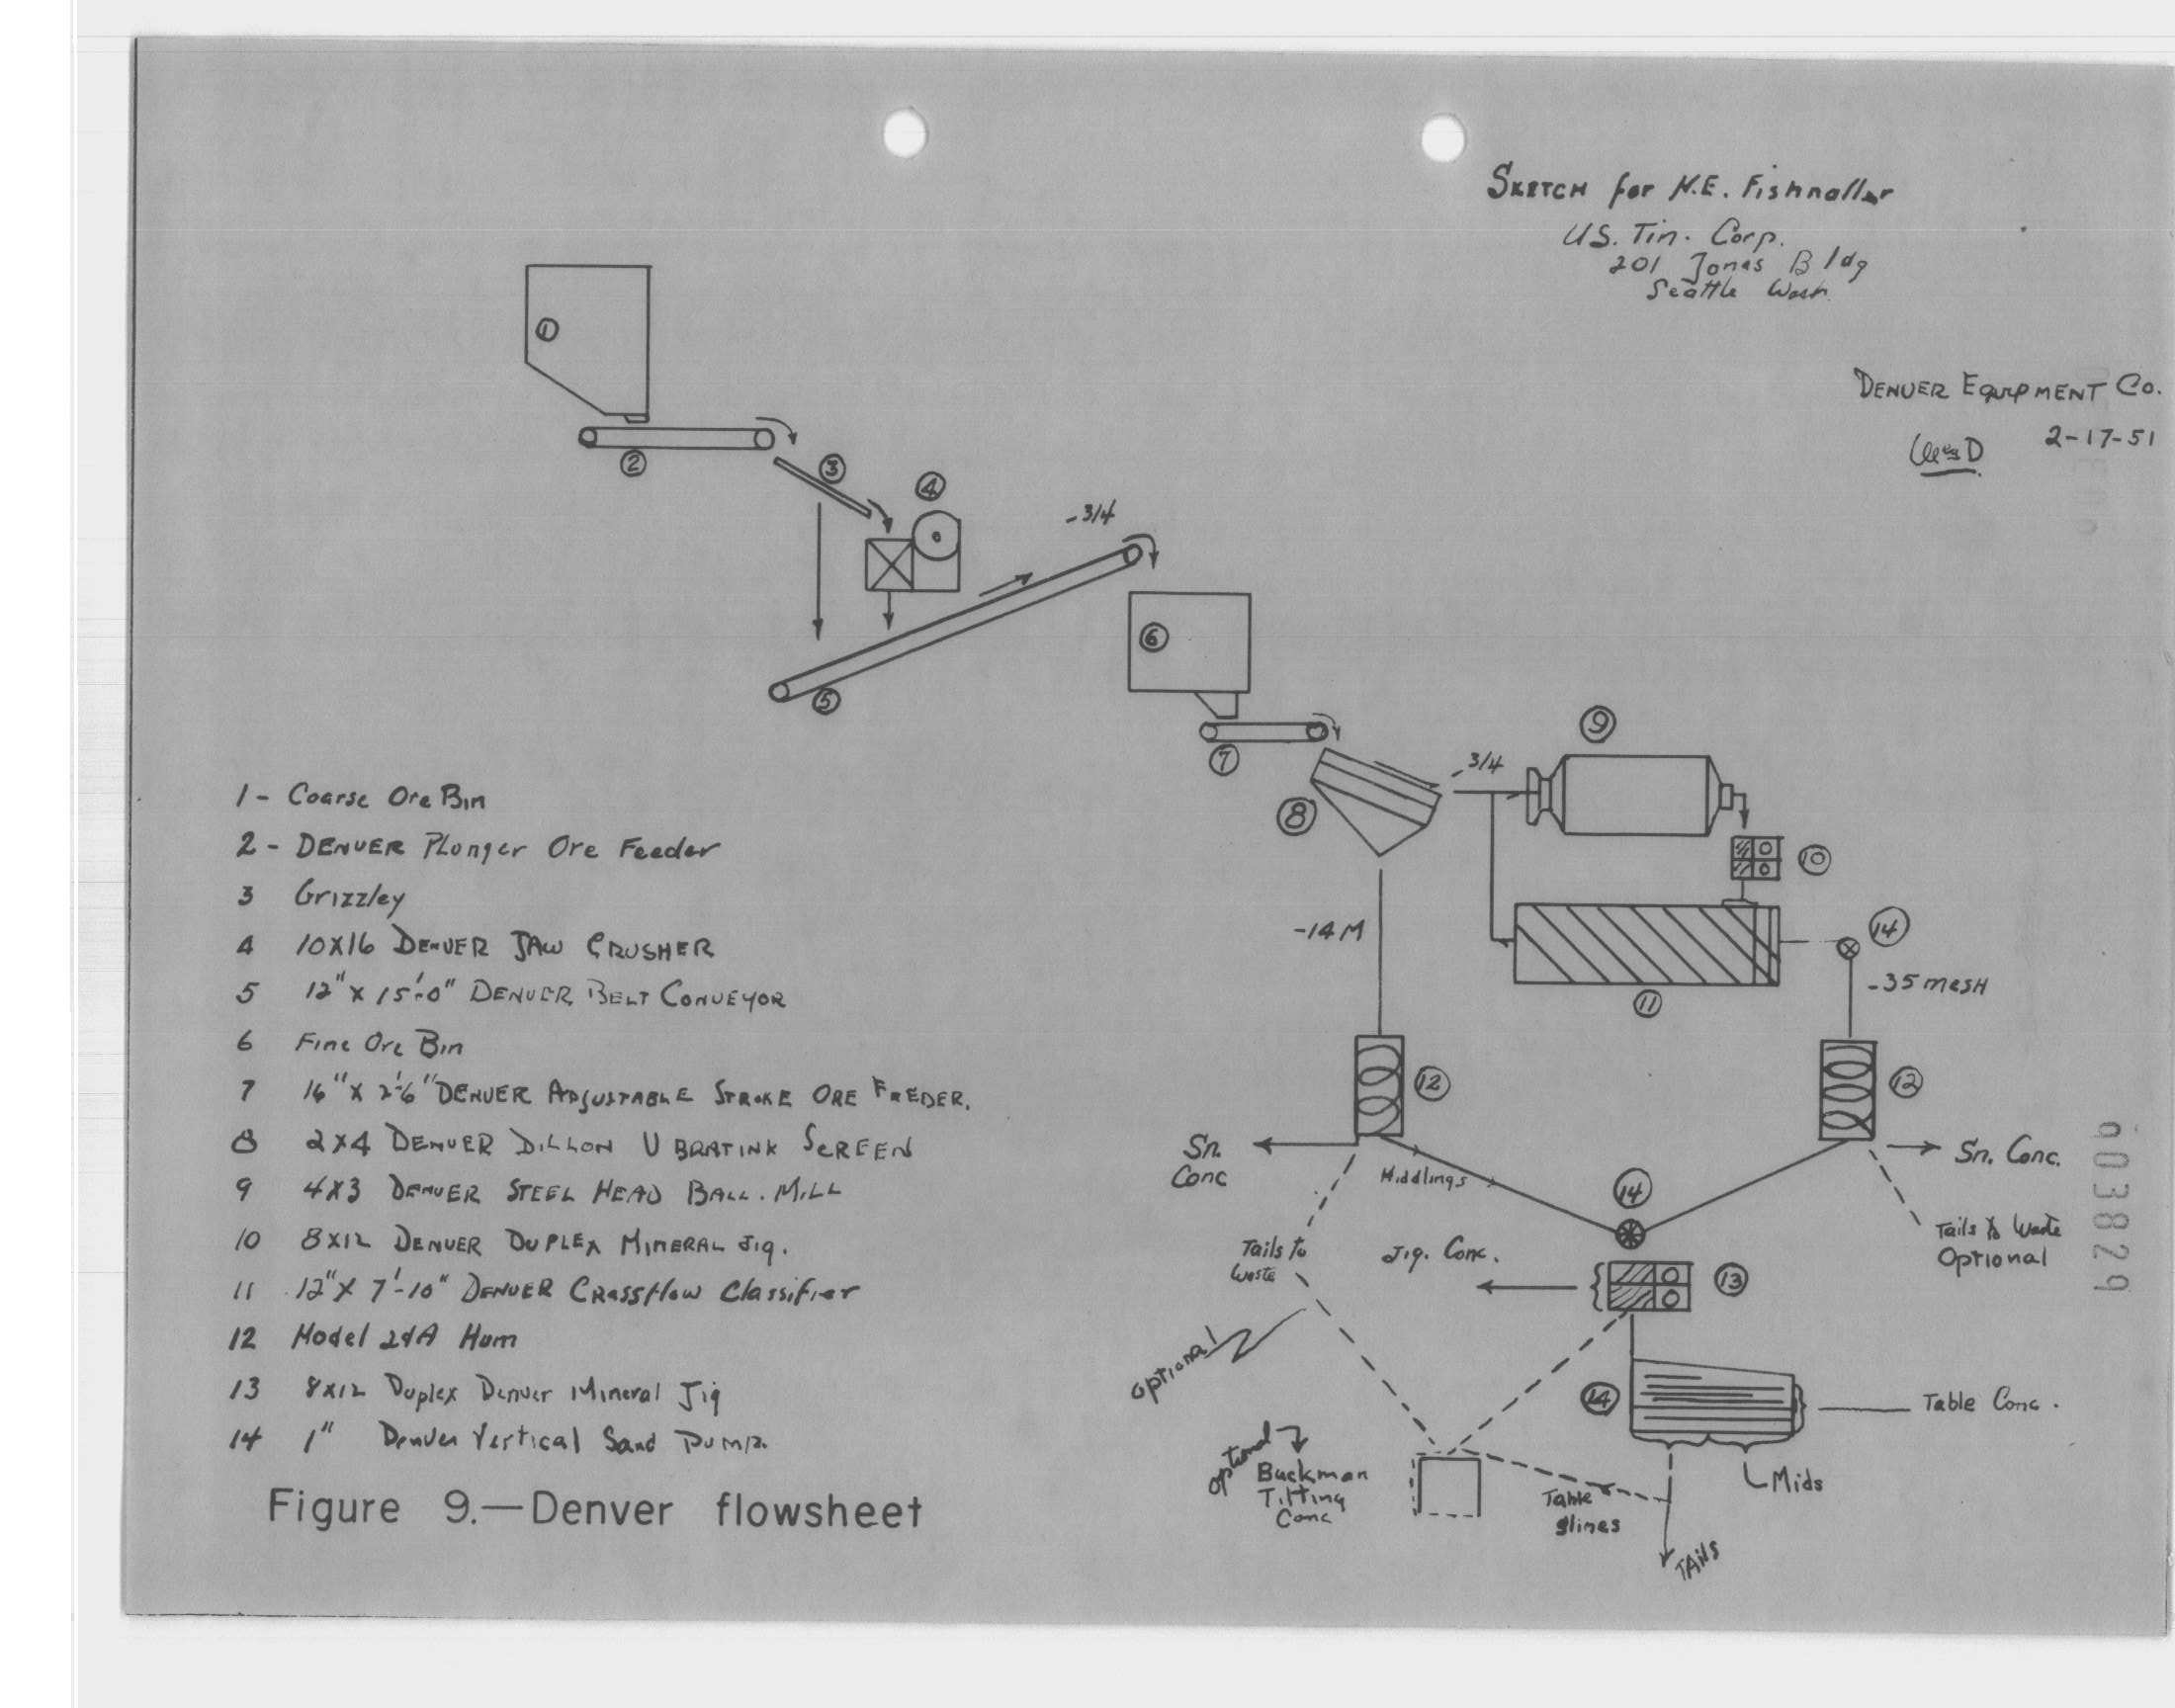 SKETCH for N.E. Fishnaller
U.S. Tin. Corp.
201 Jones Bldg
Seattle Wash.
DENVER EQUIPMENT CO.
2-17-51
1
2
3
4
-3/4
5
6
7
8
-3/4
9
10
11
14
-14 M
-35 MESH
12
12
Sn. Conc
Middlings
14
Sn. Conc.
Tails to Waste
Jig. Conc.
13
Tails to Waste Optional
optional
14
Table Conc.
optional
Buckman Tilting Conc
Table Slimes
Mids
TAils
1 - Coarse Ore Bin
2 - DENVER Plunger Ore Feeder
3 Grizzley
4 10X16 DENVER JAW CRUSHER
5 12" X 15'-0" DENVER BELT CONVEYOR
6 Fine Ore Bin
7 16" X 2'-6" DENVER ADJUSTABLE STROKE ORE FEEDER.
8 2X4 DENVER DILLON VIBRATINK SCREEN
9 4X3 DENVER STEEL HEAD BALL. MILL
10 8X12 DENVER DUPLEX MINERAL JIG.
11 12" X 7'-10" DENVER Crossflow Classifier
12 Model 24A Hum
13 8X12 Duplex Denver Mineral Jig
14 1" Denver Vertical Sand Pump.
Figure 9.—Denver flowsheet
903829